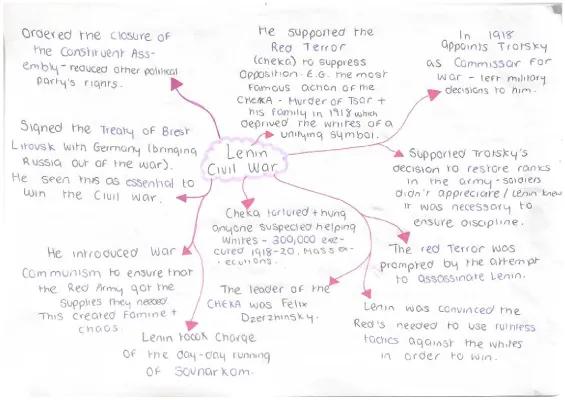 Ordered the closure of
the Constituent Ass-
embly - reduced other political
party's rights.
He supported the
Red Terror
(cheka) to suppress
Opposition. E.G. the most
famous action of the
CHEKA - Murder of Tsar +
his family in 1918 which
deprived the whites of a
unifying symbol.
In 1918
appoints Trotsky
as Commissar for
war - left military
decisions to him.
Signed the Treaty of Brest
Litovsk with Germany (bringing
Russia out of the war).
He seen this as essential to
win the Civil War.
Lenin
Civil War
Supported Trotsky's
decision to restore ranks
in the army - soldiers
didn't appreciate / Lenin knew
it was necessary to
ensure discipline.
Cheka tortured + hung
anyone suspected helping
Whites - 300,000 exe-
cuted 1918-20. Mass ex-
-ecutions.
He introduced War
Communism to ensure that
the Red Army got the
supplies they needed
This created famine +
chaos.
The red Terror was
prompted by the attempt
to assassinate Lenin.
The leader of the
CHEKA was Felix
Dzerzhinsky.
Lenin was convinced the
Red's needed to use ruthless
tactics against the whites
in order to win.
Lenin toook Charge
Of the day-day running
OF Sovnarkom.